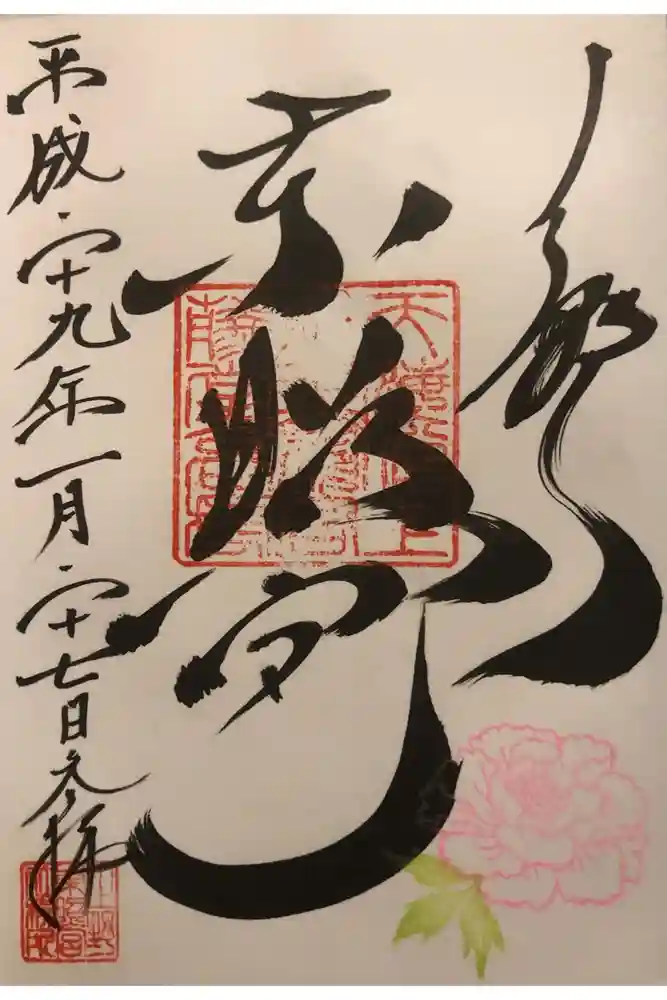 上野
東照宮
平成二十九年一月二十七日参拝